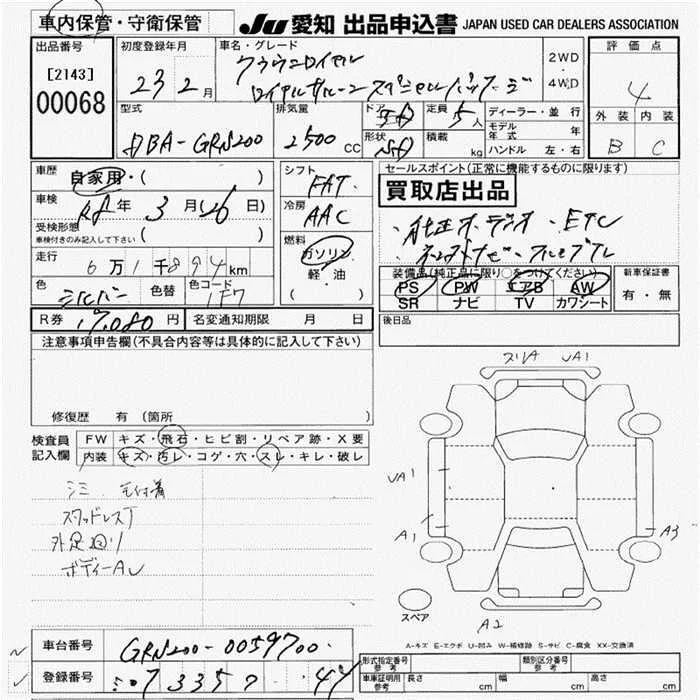 車内保管・守衛保管
JU 愛知 出品申込書 JAPAN USED CAR DEALERS ASSOCIATION
出品番号
[2143]
00068
初度登録年月
23 2月
車名・グレード
クラウンロイヤル
ロイヤルサルーンスペシャルパッケージ
2WD
4WD
評価点
4
外装 内装
B C
型式
DBA-GRS200
排気量
2500 CC
ドア
形状
定員
5人
積載
kg
ディーラー・並行
モデル年式 年
ハンドル 左・右
車歴
自家用・( )
車検
R8年 3月26日)
受検形態
車検付きのみ記入して下さい ( )
走行
6万1千894km
色
シルバー
色替
色コード
1F7
シフト
FAT
冷房
AAC
燃料
ガソリン
軽・油
( )
セールスポイント(正常に機能するものに限ります)
買取店出品
・純正オーディオ・ETC
装備品(純正品に限り○をつけてください)
PS PW エアB AW
SR ナビ TV カワシート
新車保証書
有・無
R券 17,080円
名変通知期限 月 日
後日品
注意事項申告欄(不具合内容等は具体的に記入して下さい)
修復歴 有(箇所
検査員記入欄
FW キズ・飛石・ヒビ割・リペア跡・X要
内装 キズ・汚レ・コゲ・穴・スレ・キレ・破レ
シミ 毛付着
スタッドレスT
外足回り
ボディーAU
スリA UA1
UA1
A1
A3
A2
スペア
A-キズ E-エクボ U-凹み W-補修跡 S-サビ C-腐食 XX-交換済
車台番号
GRS200-0059700
登録番号
型式指定番号
参考
類別区分番号
参考
車庫証明用
参考
長さ cm 幅 cm 高さ cm